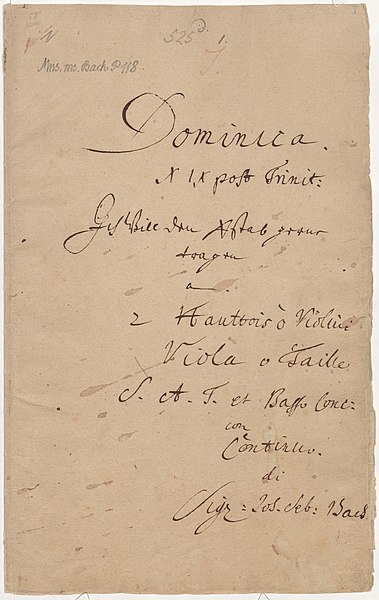 N
525 d. 1.
Mus. ms. Bach P 118
Dominica.
XIX post Trinit:
Ich Will den Xstab gerne
tragen
a
2 Hautbois ò Violini
Viola o Taille
S. A. T. et Basso Conc:
con
Continuo.
di
Sigr: Joh: Seb: Bach